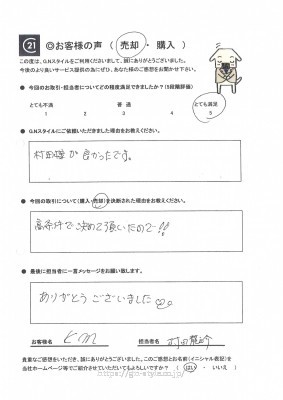 21 ◎お客様の声（ 売却 ・ 購入 ）
この度は、G.Nスタイルをご利用くださいまして、誠にありがとうございました。
今後のより良いサービス提供の為にぜひ、あなた様のご感想をお聞かせ下さい。
● 今回のお取引・担当者についてどの程度満足できましたか？(5段階評価)
とても不満 普通 とても満足
1 2 3 4 5
● G.Nスタイルにご依頼いただきました理由をお教えください。
村田様が良かったです。
● 今回の取引について（購入・売却）を決断された理由をお教えください。
高条件で決めて頂いたので!!
● 最後に担当者に一言メッセージをお願い致します。
ありがとうございました
お客様名 K M 担当者名 村田
貴重なご感想をいただき、誠にありがとうございました。このご感想とお名前(イニシャル表記)を
当社ホームページ等でご紹介させていただいてもよろしいですか？（ はい ・ いいえ ）